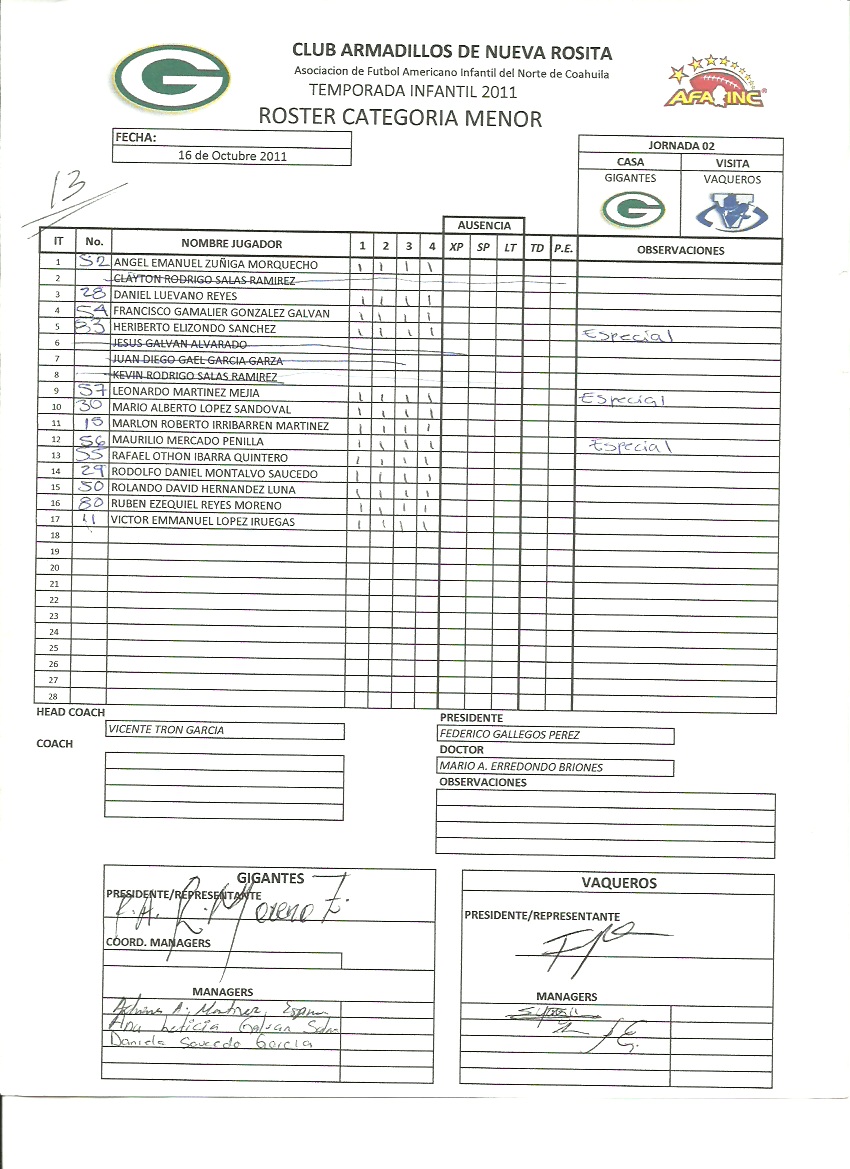 CLUB ARMADILLOS DE NUEVA ROSITA
Asociacion de Futbol Americano Infantil del Norte de Coahuila
TEMPORADA INFANTIL 2011
ROSTER CATEGORIA MENOR
G
AFA INC
FECHA:
16 de Octubre 2011
JORNADA 02
CASA VISITA
GIGANTES VAQUEROS
G
13
AUSENCIA
IT No. NOMBRE JUGADOR 1 2 3 4 XP SP LT TD P.E. OBSERVACIONES
1 52 ANGEL EMANUEL ZUÑIGA MORQUECHO | | | |
2 CLAYTON RODRIGO SALAS RAMIREZ
3 28 DANIEL LUEVANO REYES | | | |
4 54 FRANCISCO GAMALIER GONZALEZ GALVAN | | | |
5 53 HERIBERTO ELIZONDO SANCHEZ | | | | Especial
6 JESUS GALVAN ALVARADO
7 JUAN DIEGO GAEL GARCIA GARZA
8 KEVIN RODRIGO SALAS RAMIREZ
9 57 LEONARDO MARTINEZ MEJIA | | | | Especial
10 30 MARIO ALBERTO LOPEZ SANDOVAL | | | |
11 15 MARLON ROBERTO IRRIBARREN MARTINEZ | | | |
12 56 MAURILIO MERCADO PENILLA | | | | Especial
13 55 RAFAEL OTHON IBARRA QUINTERO | | | |
14 29 RODOLFO DANIEL MONTALVO SAUCEDO | | | |
15 50 ROLANDO DAVID HERNANDEZ LUNA | | | |
16 80 RUBEN EZEQUIEL REYES MORENO | | | |
17 11 VICTOR EMMANUEL LOPEZ IRUEGAS | | | |
18
19
20
21
22
23
24
25
26
27
28
HEAD COACH
VICENTE TRON GARCIA
COACH
PRESIDENTE
FEDERICO GALLEGOS PEREZ
DOCTOR
MARIO A. ERREDONDO BRIONES
OBSERVACIONES
GIGANTES
PRESIDENTE/REPRESENTANTE
R. Moreno Z.
COORD. MANAGERS
MANAGERS
A. Martinez
Ana Leticia Galvan
Daniela Saucedo Garcia
VAQUEROS
PRESIDENTE/REPRESENTANTE
MANAGERS